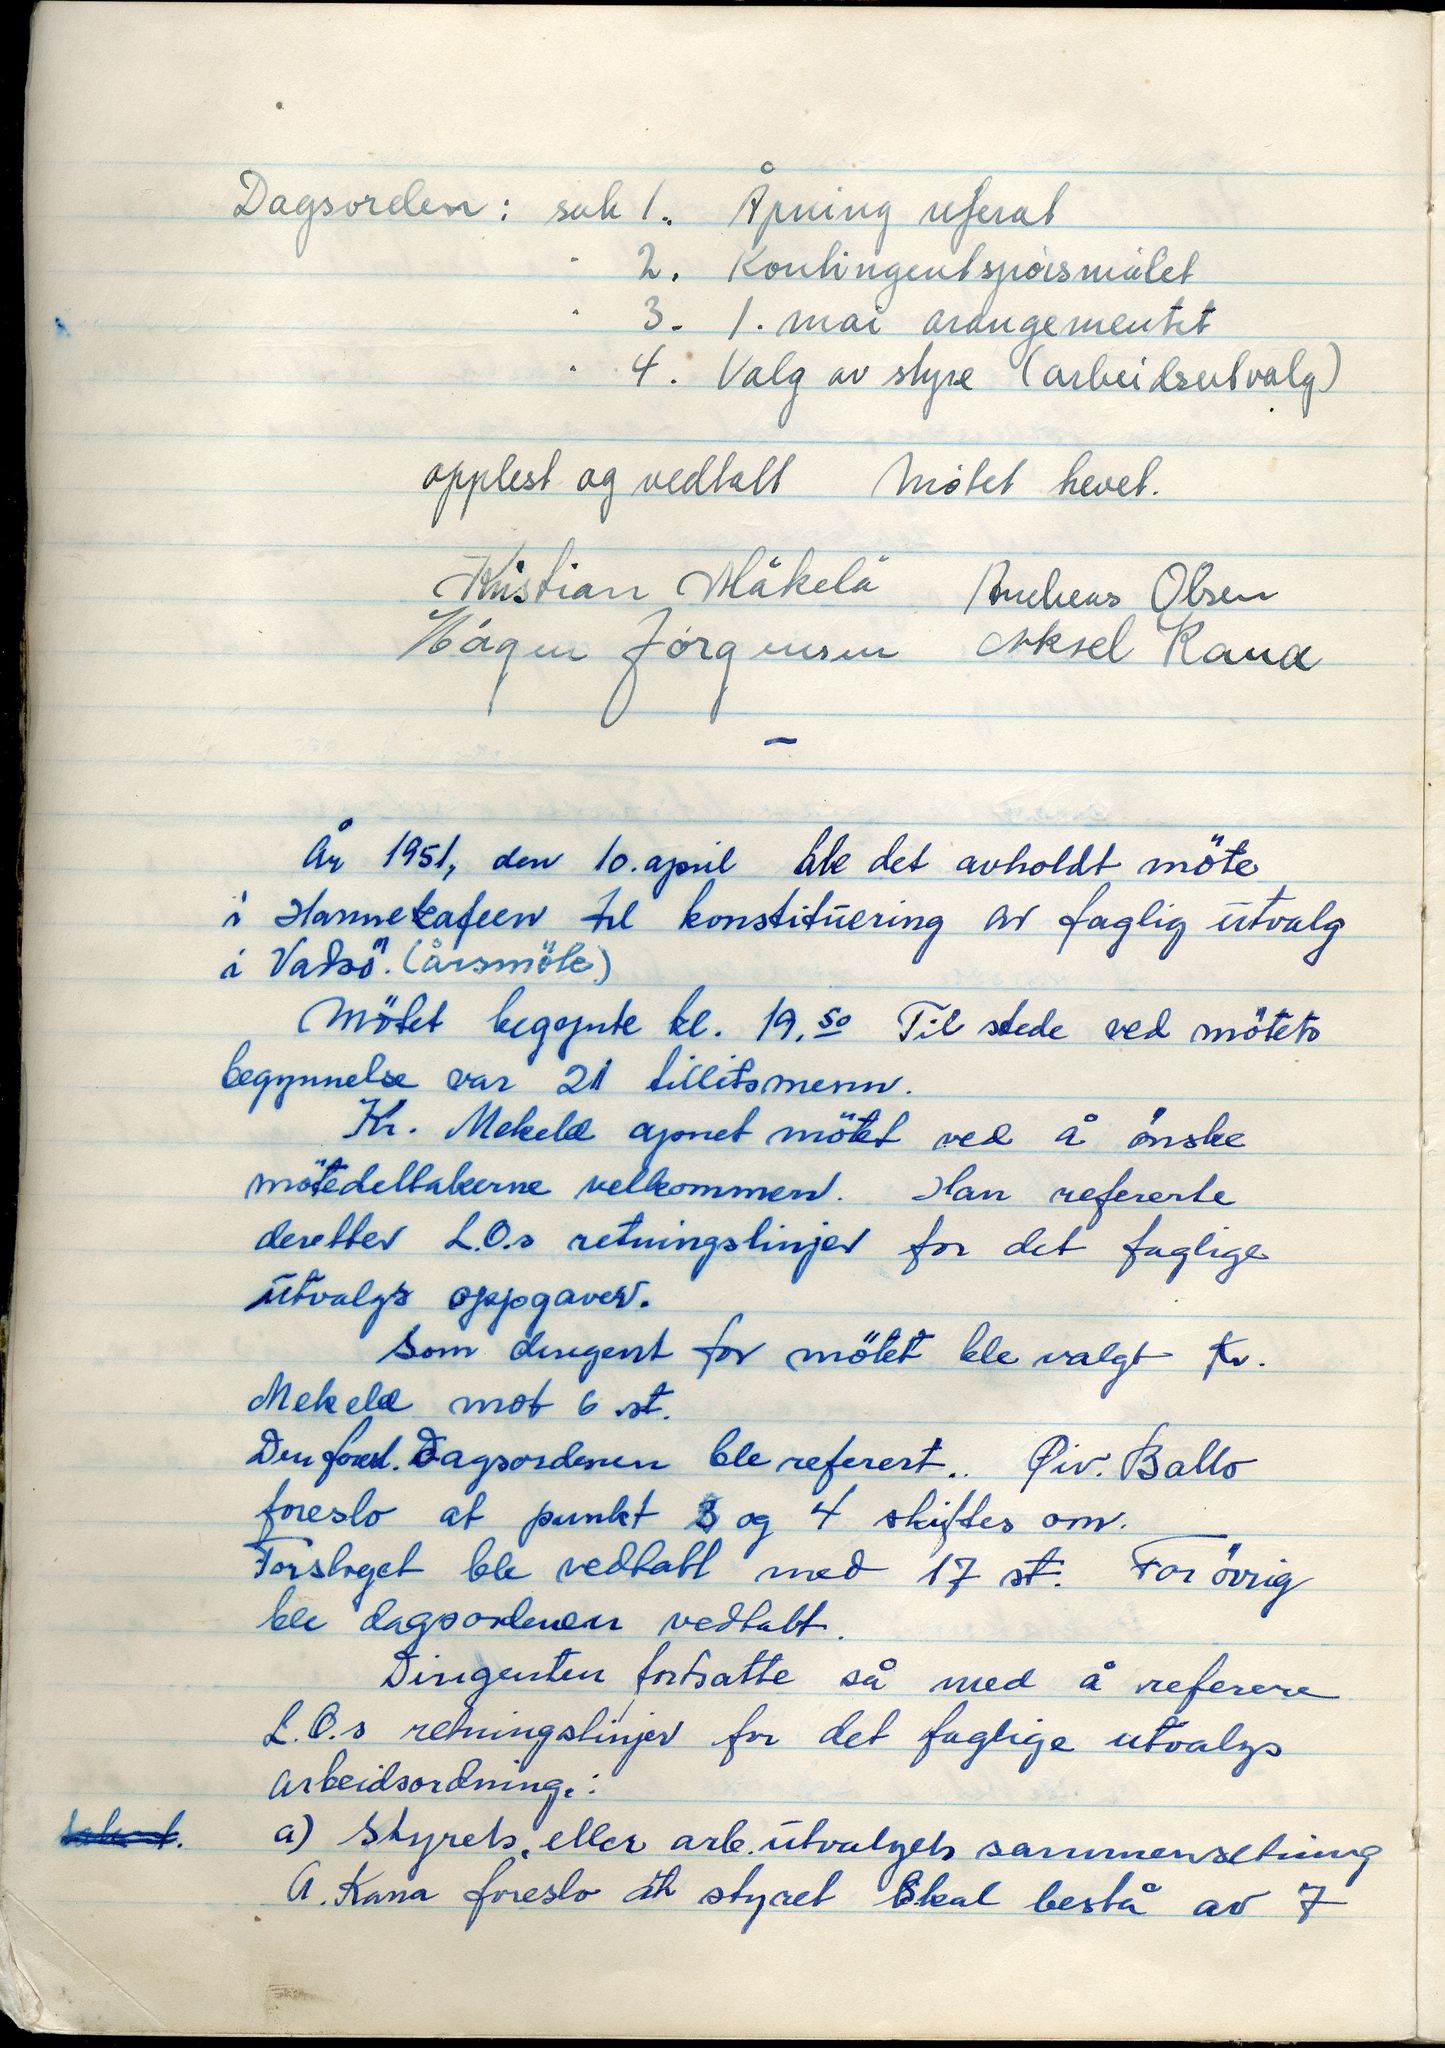 Dagsorden: sak 1. Åpning referat
" 2. Kontingentspörsmålet
" 3. 1. mai arangementet
" 4. Valg av styre (arbeidsutvalg)
opplest og vedtatt Mötet hevet.
Kristian Mäkelä Andreas Olsen
Hågen Jörgensen Aksel Kana
—
År 1951, den 10. april ble det avholdt möte
i Hannekafeen til konstituering av faglig utvalg
i Vadsö. (årsmöte)
Mötet begynte kl. 19.50 Til stede ved mötets
begynnelse var 21 tillitsmenn.
Kr. Mekelæ apnet mötet ved å önske
mötedeltakerne velkommen. Han refererte
deretter L.O.s retningslinjer for det faglige
utvalgs oppgaver.
Som dirigent for mötet ble valgt Kr.
Mekelæ mot 6 st.
Den foresl. Dagsordenen ble referert.. Øiv. Ballo
foreslo at punkt 3 og 4 skiftes om.
Forslaget ble vedtatt med 17 st. For övrig
ble dagsordenen vedtatt.
Dirigenten fortsatte så med å referere
L.O.s retningslinjer for det faglige utvalgs
arbeidsordning.:
a) Styrets, eller arb. utvalgets sammensetning
A. Kana foreslo at styret skal bestå av 7